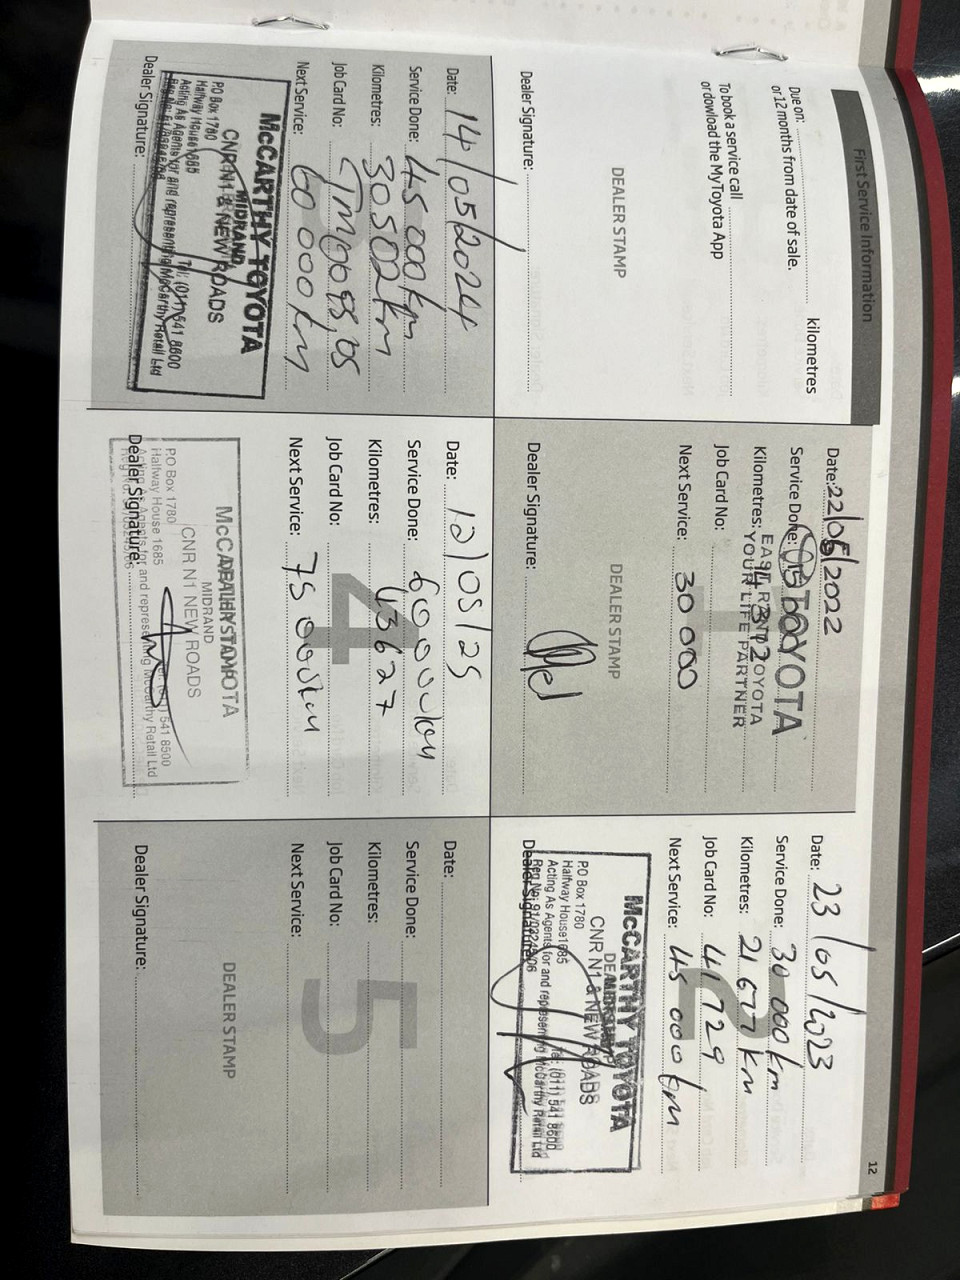 First Service Information
12
Due on: kilometres
or 12 months from date of sale.
To book a service call
or dowload the MyToyota App
DEALER STAMP
Dealer Signature:
Date: 22/05/2022
Service Done:
TOYOTA
Kilometres:
EAST RAND TOYOTA
YOUR LIFE PARTNER
Job Card No:
1
Next Service: 30 000
DEALER STAMP
Dealer Signature:
Date: 23/05/2023
Service Done: 30 000 km
Kilometres: 21 677 km
Job Card No: 41729
2
Next Service: 45 000 km
McCARTHY TOYOTA
DEALER STAMP
MIDRAND
CNR N1 & NEW ROADS
P.O Box 1780
Halfway House 1685
Tel: (011) 541 8600
Acting As Agents for and representing McCarthy Retail Ltd
Dealer Signature:
Date: 14/05/2024
Service Done: 45 000 km
Kilometres: 30502 km
Job Card No:
Next Service: 60 000 km
McCARTHY TOYOTA
MIDRAND
CNR N1 & NEW ROADS
P.O Box 1780
Halfway House 1685
Tel: (011) 541 8600
Acting As Agents for and representing McCarthy Retail Ltd
Dealer Signature:
Date: 12/05/25
Service Done: 60000km
Kilometres: 43627
Job Card No:
4
Next Service: 75 000km
McCARTHY TOYOTA
DEALER STAMP
MIDRAND
CNR N1 NEW ROADS
P.O Box 1780
Halfway House 1685
541 8500
Acting As Agents for and representing McCarthy Retail Ltd
Dealer Signature:
Date:
Service Done:
Kilometres:
Job Card No:
5
Next Service:
DEALER STAMP
Dealer Signature: